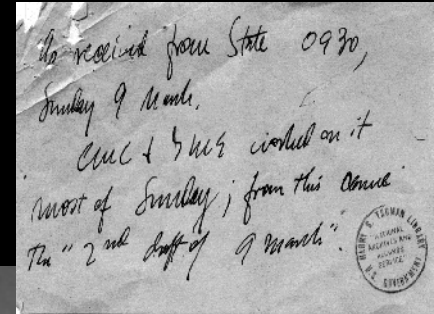 As received from State 0930,
Sunday 9 March.
CMC & GME worked on it
most of Sunday; from this came
the "2nd draft of 9 March".
HARRY S. TRUMAN LIBRARY
NATIONAL
ARCHIVES AND
RECORDS
SERVICE